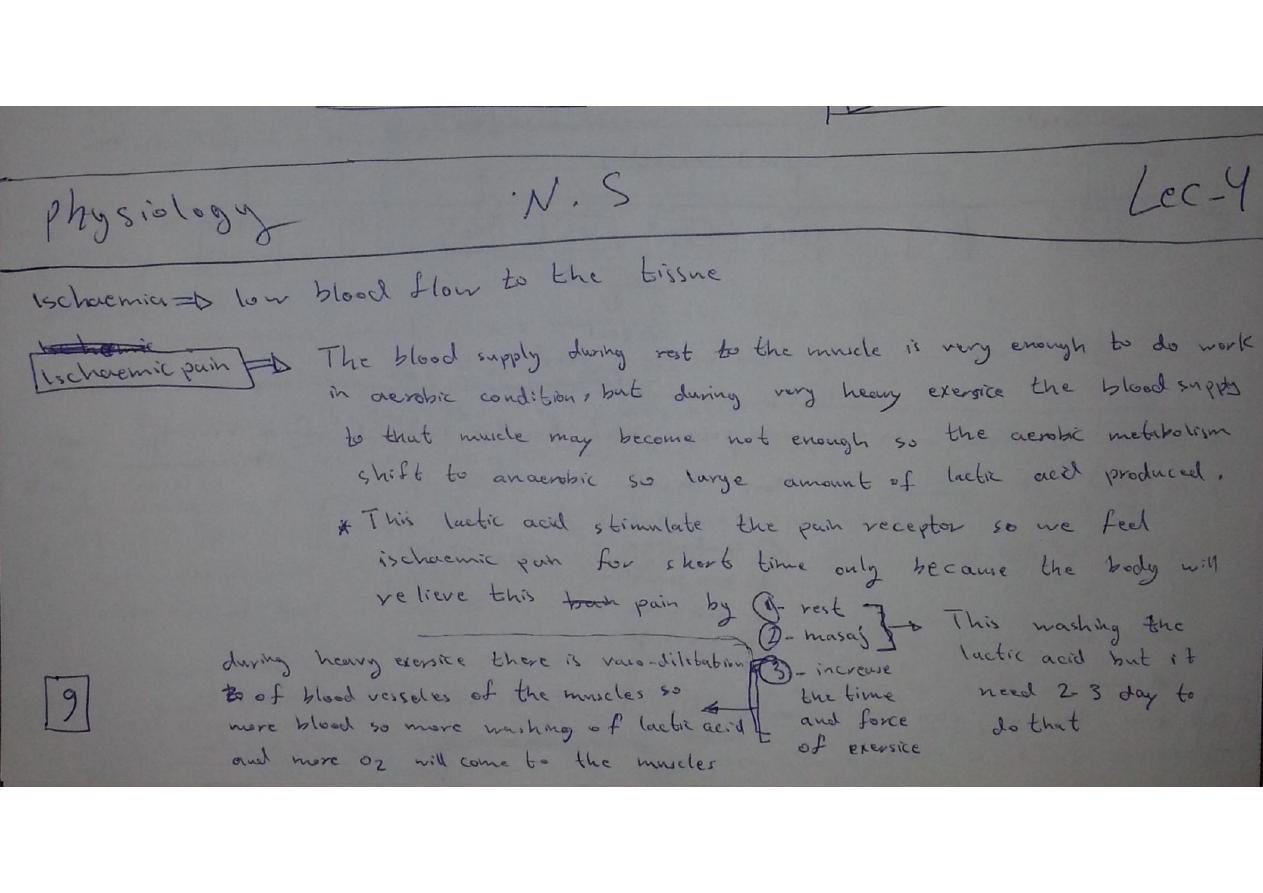 Physiology N.S Lec-4
Ischaemia ⇒ low blood flow to the tissue
Ischaemic pain ⇒ The blood supply during rest to the muscle is very enough to do work
in aerobic condition, but during very heavy exersice the blood supply
to that muscle may become not enough so the aerobic metabolism
shift to anaerobic so large amount of lactic acid produced.
* This lactic acid stimulate the pain receptor so we feel
ischaemic pain for short time only because the body will
relieve this pain by ①- rest
②- masaj
→ This washing the
lactic acid but it
need 2-3 day to
do that
③- increase
the time
and force
of exersice
during heavy exersice there is vaso-dilitation
of blood vesseles of the muscles so
more blood so more washing of lactic acid
and more O2 will come to the muscles
9